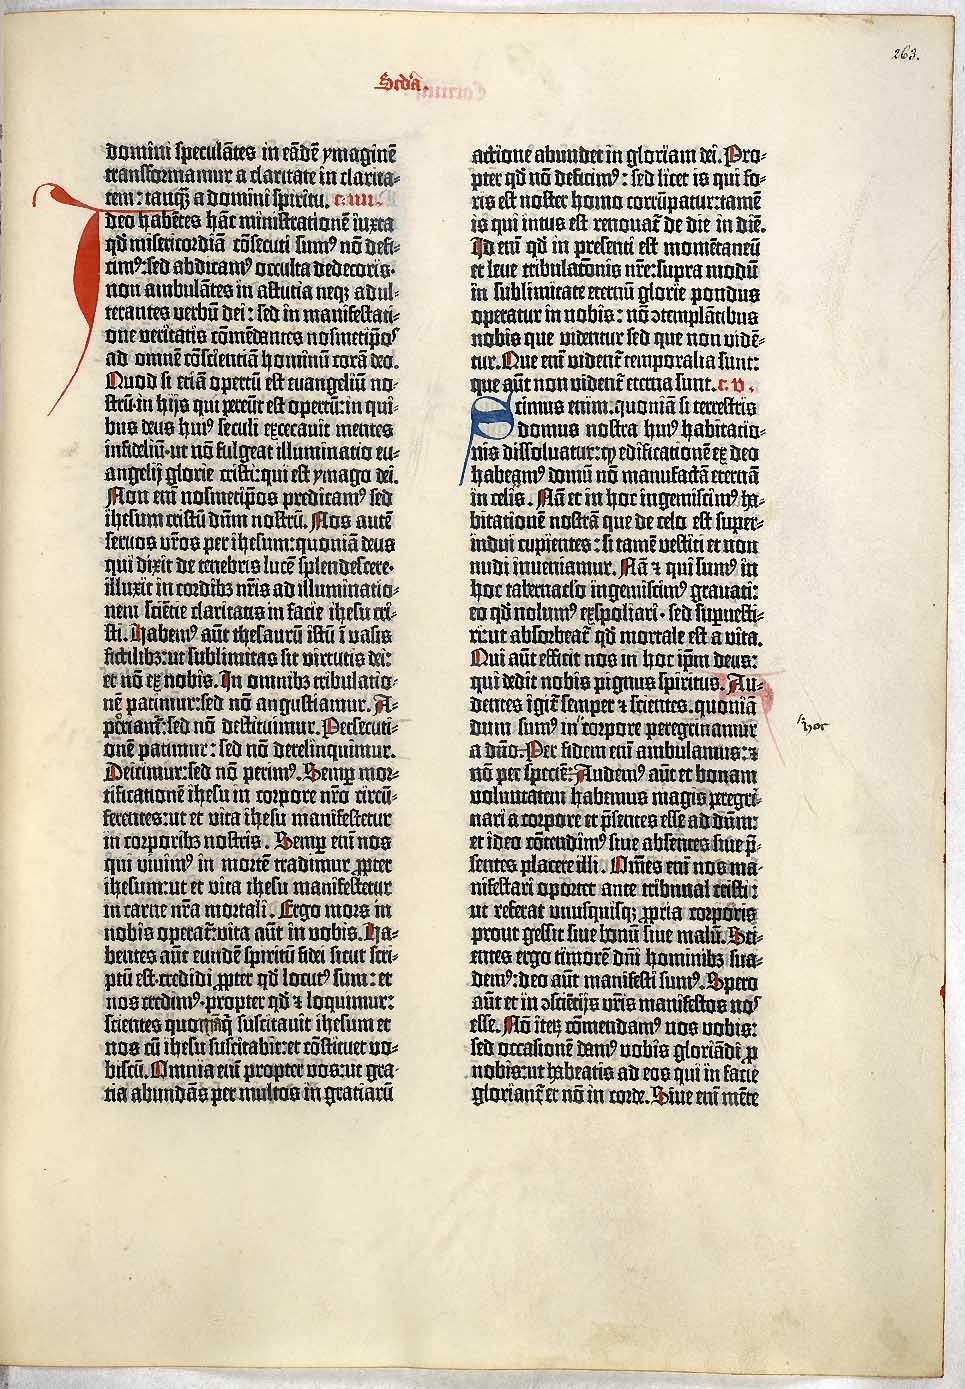 263.
Scd'a.
domini speculātes in eādē ymaginē
transformamur a claritate in clarita-
tem: tanqꝫ a domini spiritu. c. iiii.
Ideo habētes hāc ministrationē iuxta
qđ misericordiā cōsecuti sumꝰ nō defi-
cimꝰ: sed abdicamꝰ occulta dedecoris·
non ambulātes in astutia neqꝫ adul-
terantes verbū dei: sed in manifestati-
one veritatis cōmēdantes nosmetip̄oꝰ
ad omnē cōscientiā hominū corā deo.
Quod si etiā opertū est euangeliū no-
strū·in hijs qui pereūt est opertū: in qui-
bus deus huiꝰ seculi excecauit mentes
infideliū·ut nō fulgeat illuminatio eu-
angelij glorie cristi: qui est ymago dei.
Non eni nosmetip̄os predicamꝰ sed
ihesum cristū dūm nostrū. Nos autē
seruos vr̄os per ihesum: quoniā deus
qui dixit de tenebris lucē splendescere·
illuxit in cordibꝫ nr̄is ad illuminatio-
nem sciētie claritatis in facie ihesu cri-
sti. Habemꝰ aūt thesaurū istū ī vasis
fictilibꝫ: ut sublimitas sit virtutis dei:
et nō ex nobis. In omnibꝫ tribulatio-
nē patimur: sed nō angustiamur. A-
poriamr̄: sed nō destituimur. Persecuti-
onē patimur: sed nō derelinquimur.
Deicimur: sed nō perimꝰ. Semꝑ mor-
tificationē ihesu in corpore nr̄o circū-
ferentes: ut et vita ihesu manifestetur
in corporibꝫ nostris. Semꝑ eni nos
qui viuimꝰ in mortē tradimur ꝓpter
ihesum: ut et vita ihesu manifestetur
in carne nr̄a mortali. Ergo mors in
nobis operat̄: vita aūt in vobis. Ha-
bentes aūt eundē spiritū fidei sicut scri-
ptū est·credidi ꝓpter qđ locutꝰ sum: et
nos credimꝰ·propter qđ ⁊ loquimur:
scientes quoniā q̄ suscitauit ihesum et
nos cū ihesu suscitabit: et cōstituet vo-
biscū. Omnia eni propter vos: ut gra-
tia abundās per multos in gratiarū
actione abundet in gloriam dei. Pro-
pter qđ nō deficimꝰ: sed licet is qui fo-
ris est noster homo corrūpatur: tamē
is qui intus est renouat̄ de die in diē.
Id eni qđ in presenti est momētaneū
et leue tribulatōnis nr̄e: supra modū
in sublimitate eternū glorie pondus
operatur in nobis: nō ↄtemplātibus
nobis que videntur sed que non vidē-
tur. Que eni vident̄ temporalia sunt:
que aūt non vident̄ eterna sunt. c. v.
Scimus enim·quoniā si terrestris
domus nostra huiꝰ habitatio-
nis dissoluatur: ꝙ edificationē ex deo
habeamꝰ domū nō manufactā eternā
in celis. Nā et in hoc ingemiscimꝰ ha-
bitationē nostrā que de celo est super-
indui cupientes: si tamē vestiti et non
nudi inueniamur. Nā ⁊ qui sumꝰ in
hoc tabernaclo ingemiscimꝰ grauati:
eo qđ nolumꝰ exspoliari·sed sup̄uesti-
ri: ut absorbeat̄ qđ mortale est a vita.
Qui aūt efficit nos in hoc ip̄m deus:
qui dedit nobis pignus spiritus. Au-
dentes igit̄ semper ⁊ scientes·quoniā
dum sumꝰ in corpore peregrinamur
hoc
a dn̄o. Per fidem eni ambulamus: ⁊
nō per speciē: Audemꝰ aūt et bonam
voluntatem habemus magis peregri-
nari a corpore et p̄sentes esse ad dūm:
et ideo cōtendimꝰ siue absentes siue p̄-
sentes placere illi. Om̄es eni nos ma-
nifestari oportet ante tribunal cristi:
ut referat vnusquisqꝫ ꝓpria corporis
prout gessit siue bonū siue malū. Sci-
entes ergo timorē dn̄i hominibꝫ sua-
demꝰ: deo aūt manifesti sumꝰ. Spero
aūt et in ↄsciētijs vr̄is manifestos noꝰ
esse. Nō iteꝝ cōmendamꝰ nos vobis:
sed occasionē damꝰ vobis gloriādi ꝓ
nobis: ut habeatis ad eos qui in facie
gloriant̄ et nō in corde. Siue eni mēte